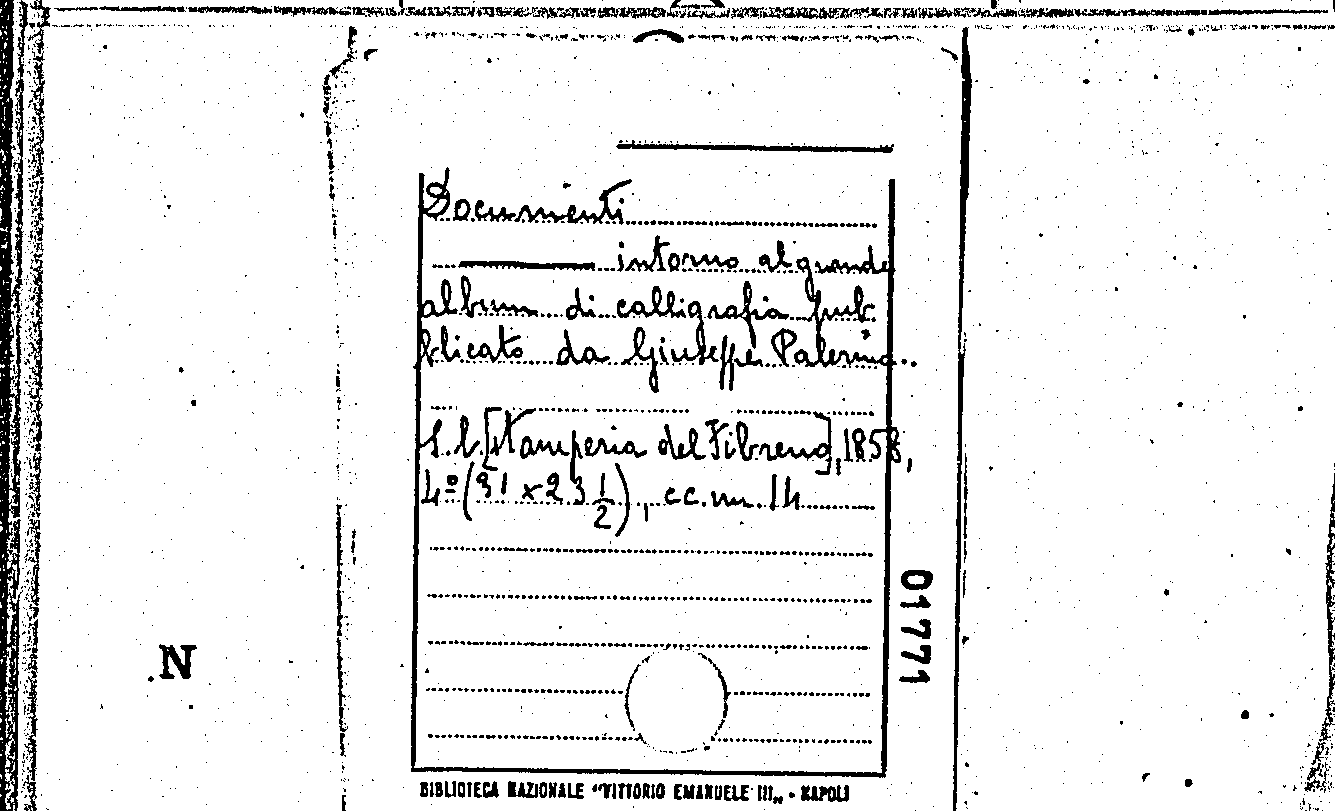 Documenti
intorno al grande
album di calligrafia pub
blicato da Giuseppe Palermo.
S. l. [Stamperia del Fibreno], 1858,
4º (31 x 23 1/2), cc. nn. 14
01771
N
BIBLIOTECA NAZIONALE "VITTORIO EMANUELE III„ - NAPOLI